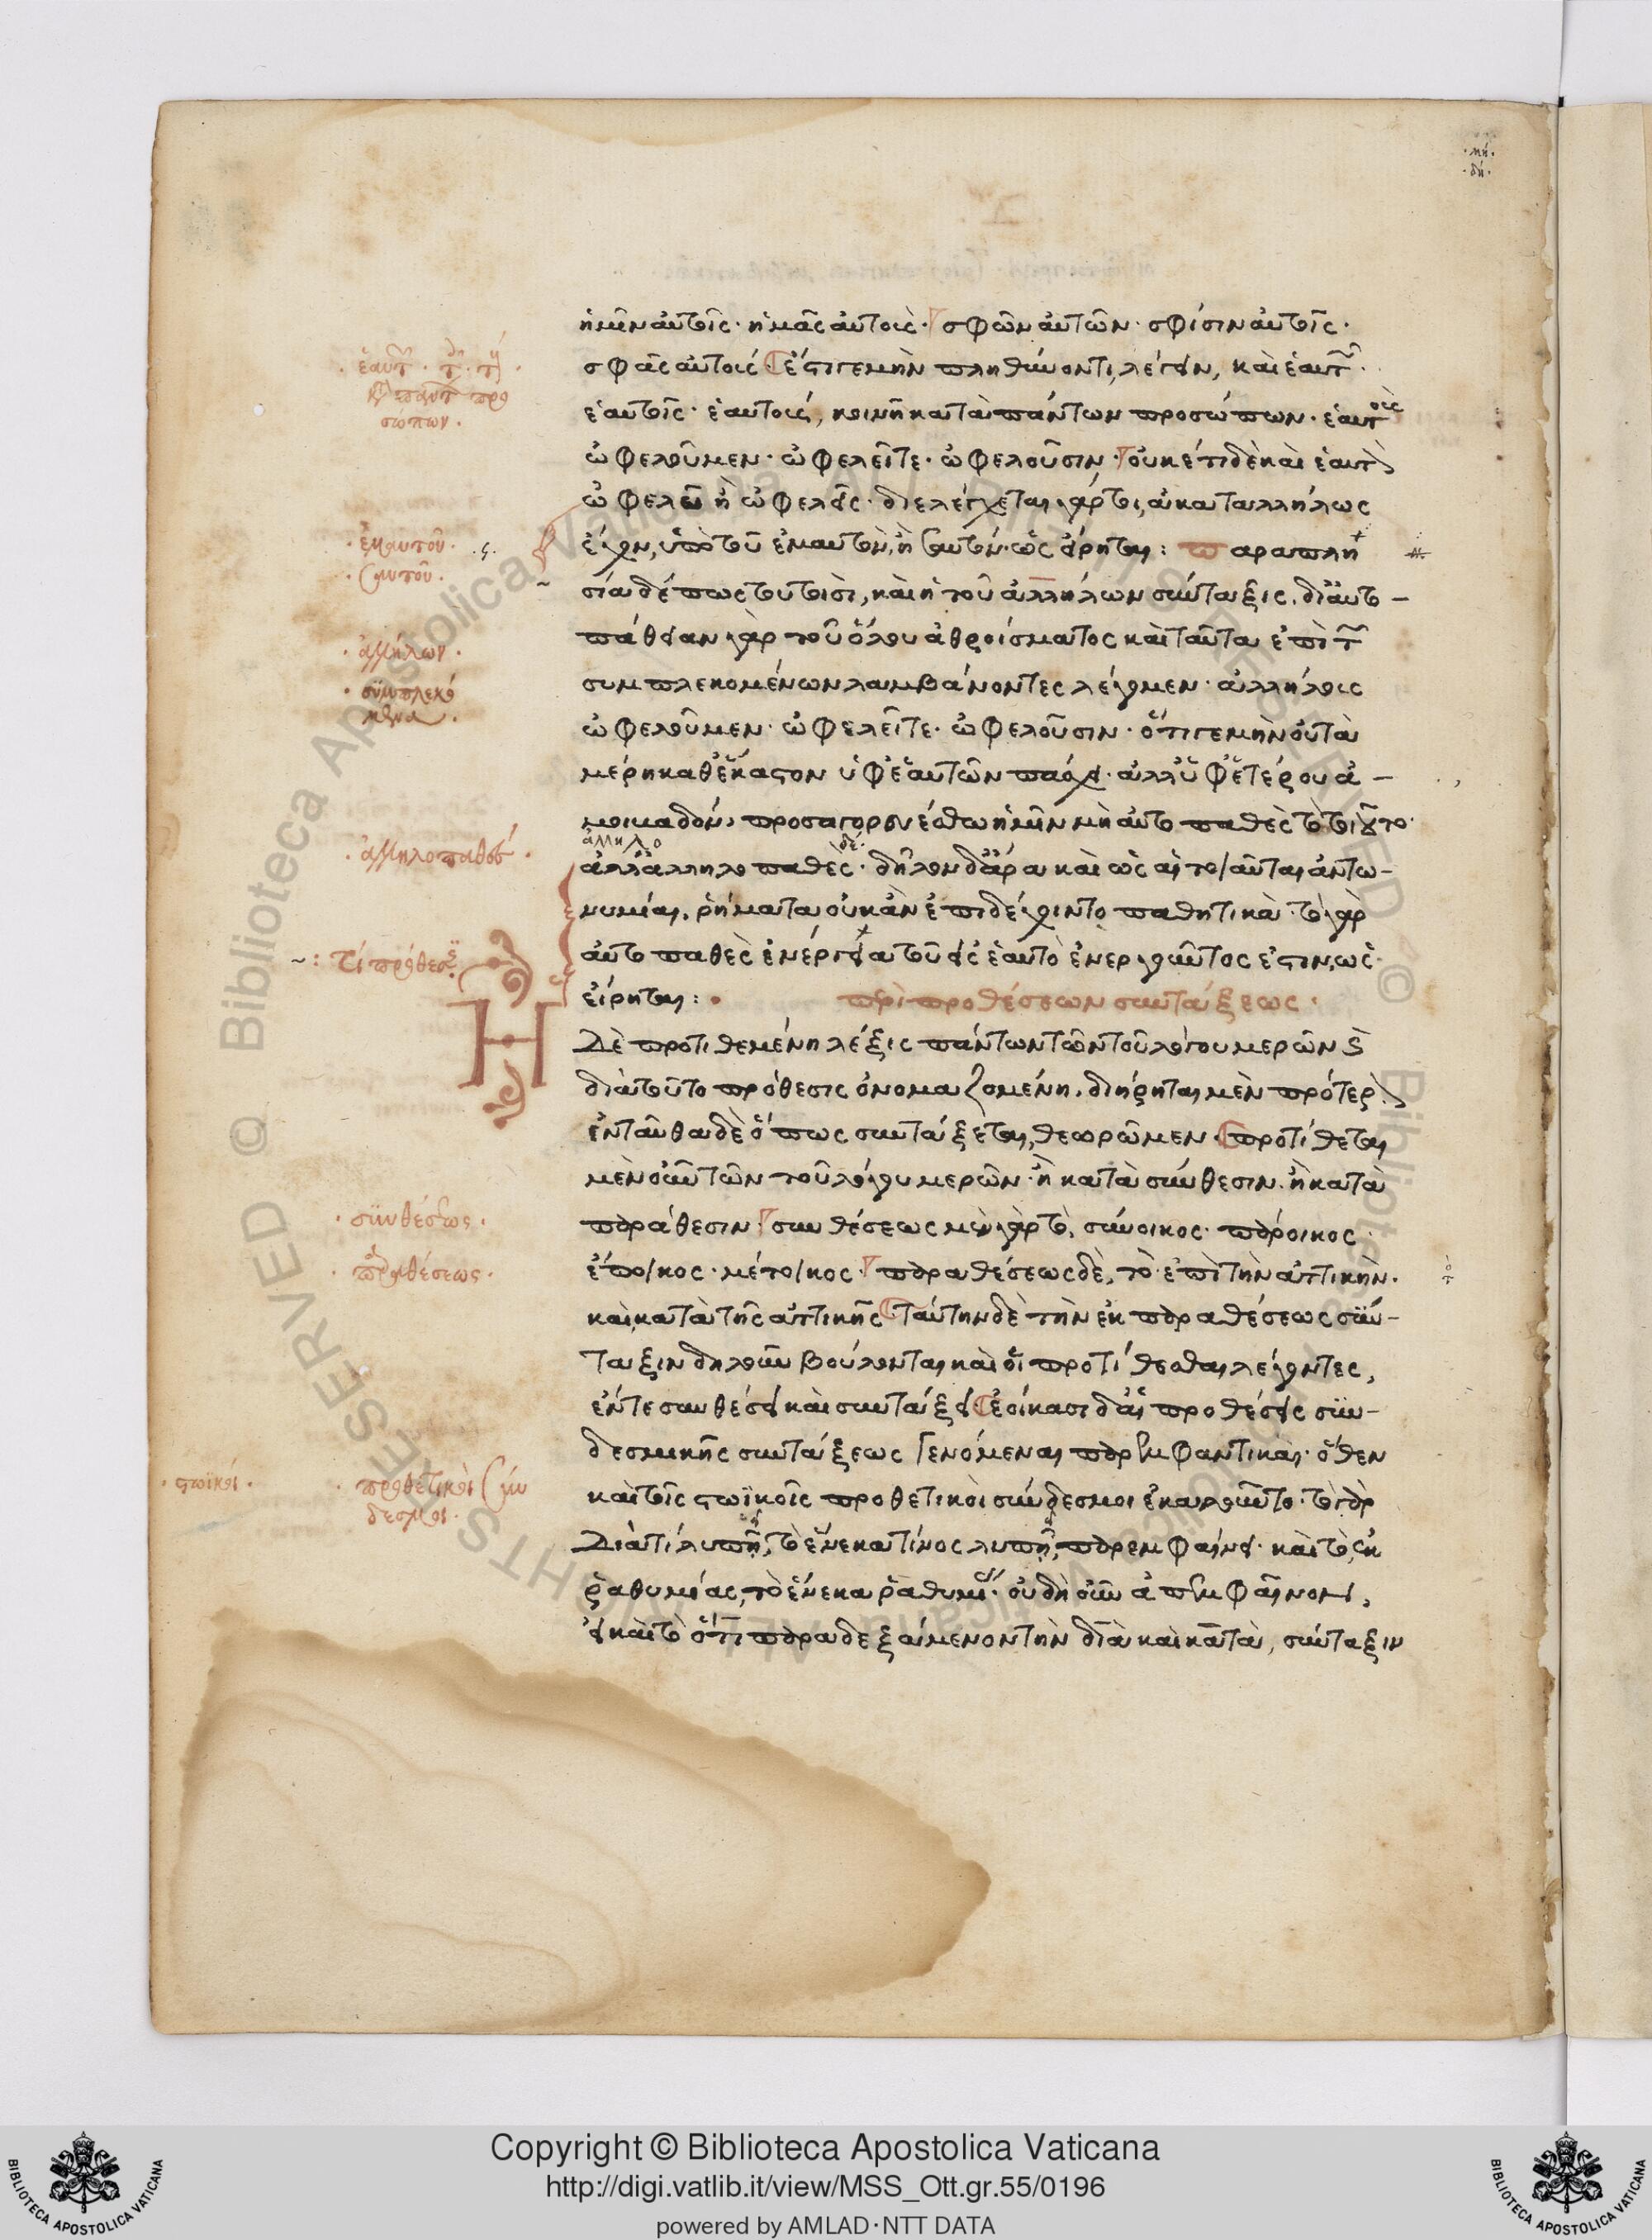 ἡμῖν αὐτοῖς· ἡμᾶς αὐτούς· σφῶν αὐτῶν· σφίσιν αὐτοῖς·
σφᾶς αὐτούς· ἔστι γε μὴν πληθύνοντι λέγειν, καὶ ἑαυτῶν·
ἑαυτοῖς· ἑαυτούς, κοινῇ κατὰ πάντων προσώπων· ἑαυτοὺς
ὠφελοῦμεν· ὠφελεῖτε· ὠφελοῦσιν· οὐκέτι δὲ καὶ ἑαυτὸν
ὠφελῶ ἢ ὠφελεῖς· διελέγχεται γάρ τοι, ἀκαταλλήλως
ἔχον, ὑπὸ τοῦ ἐμαυτόν, ἢ σαυτόν· ὡς εἴρηται: παραπλη
σία δέ πως τούτοισὶ, καὶ ἡ τοῦ ἀλλήλων σύνταξις. δι αὐτο-
πάθειαν γὰρ τοῦ ὅλου ἀθροίσματος καὶ ταῦτα ἐπὶ τῶν
συμπλεκομένων λαμβάνοντες λέγομεν· ἀλλήλους
ὠφελοῦμεν· ὠφελεῖτε· ὠφελοῦσιν· ὅτι γε μὴν οὐ τὰ
μέρη καθ ἕκαστον ὑφ ἑαυτῶν πάσχει· ἀλλ ὑφ ἑτέρου ἀ-
μοιβαδόν, προσαγορευέσθω ἡμῖν μὴ αὐτοπαθὲς τὸ τοιοῦτο·
ἀλλ ἀλληλοπαθές· δῆλον δ ἄρα καὶ ὡς αἱ τοιαῦται ἀντω-
νυμίαι, ῥήματα οὐκ ἂν ἐπιδέχοιντο παθητικά· τὸ γὰρ
αὐτοπαθὲς ἐνέργεια τοῦ εἰς ἑαυτὸ ἐνεργοῦντος ἐστιν, ὡς
εἴρηται:
περὶ προθέσεων συντάξεως·
Η
Δὲ προτιθεμένη λέξις πάντων τῶν τοῦ λόγου μερῶν καὶ
διὰ τοῦτο πρόθεσις ὀνομαζομένη, διῄρηται μὲν πρότερον
ἐνταῦθα δὲ ὅπως συντάξεται, θεωρῶμεν· προτίθεται
μὲν οὖν τῶν τοῦ λόγου μερῶν· ἢ κατὰ σύνθεσιν, ἢ κατὰ
παράθεσιν· συνθέσεως μὲν γὰρ τὸ, σύνοικος· πάροικος·
ἔποικος· μέτοικος· παραθέσεως δὲ, τὸ ἐπὶ τὴν ἀττικὴν·
καὶ, κατὰ τῆς ἀττικῆς· ταύτην δὲ τὴν ἐκ παραθέσεως σύν-
ταξιν δηλοῦν βούλονται καὶ οἱ προτίθεσθαι λέγοντες,
ἔν τε συνθέσει καὶ συντάξει· ἐοίκασι δ αἱ προθέσεις συν-
δεσμικῆς συντάξεως γενόμεναι παρεμφαντικαί· ὅθεν
καὶ τοῖς στωϊκοῖς προθετικοὶ σύνδεσμοι ἐκαλοῦντο· τὸ γὰρ
Διὰ τί λυπῇ, τὸ ἕνεκα τίνος λυπῇ, παρεμφαίνει· καὶ τὸ, ἐκ
ῥαθυμίας, τὸ ἕνεκα ῥαθυμίας· οὐδὴ οὖν
εἰ καὶ τὸ ὅτι παραδεξάμενον τὴν διὰ καὶ κατὰ, σύνταξιν
ἐμαυτοῦ·
σαυτοῦ·
ἀλλήλων·
ἀλληλοπαθές·
τί πρόθεσις
συνθέσεως·
παραθέσεως·
στωϊκοί·
προθετικοὶ σύν
δεσμοι·
Copyright © Biblioteca Apostolica Vaticana
http://digi.vatlib.it/view/MSS_Ott.gr.55/0196
powered by AMLAD·NTT DATA
BIBLIOTECA APOSTOLICA VATICANA
BIBLIOTECA APOSTOLICA VATICANA